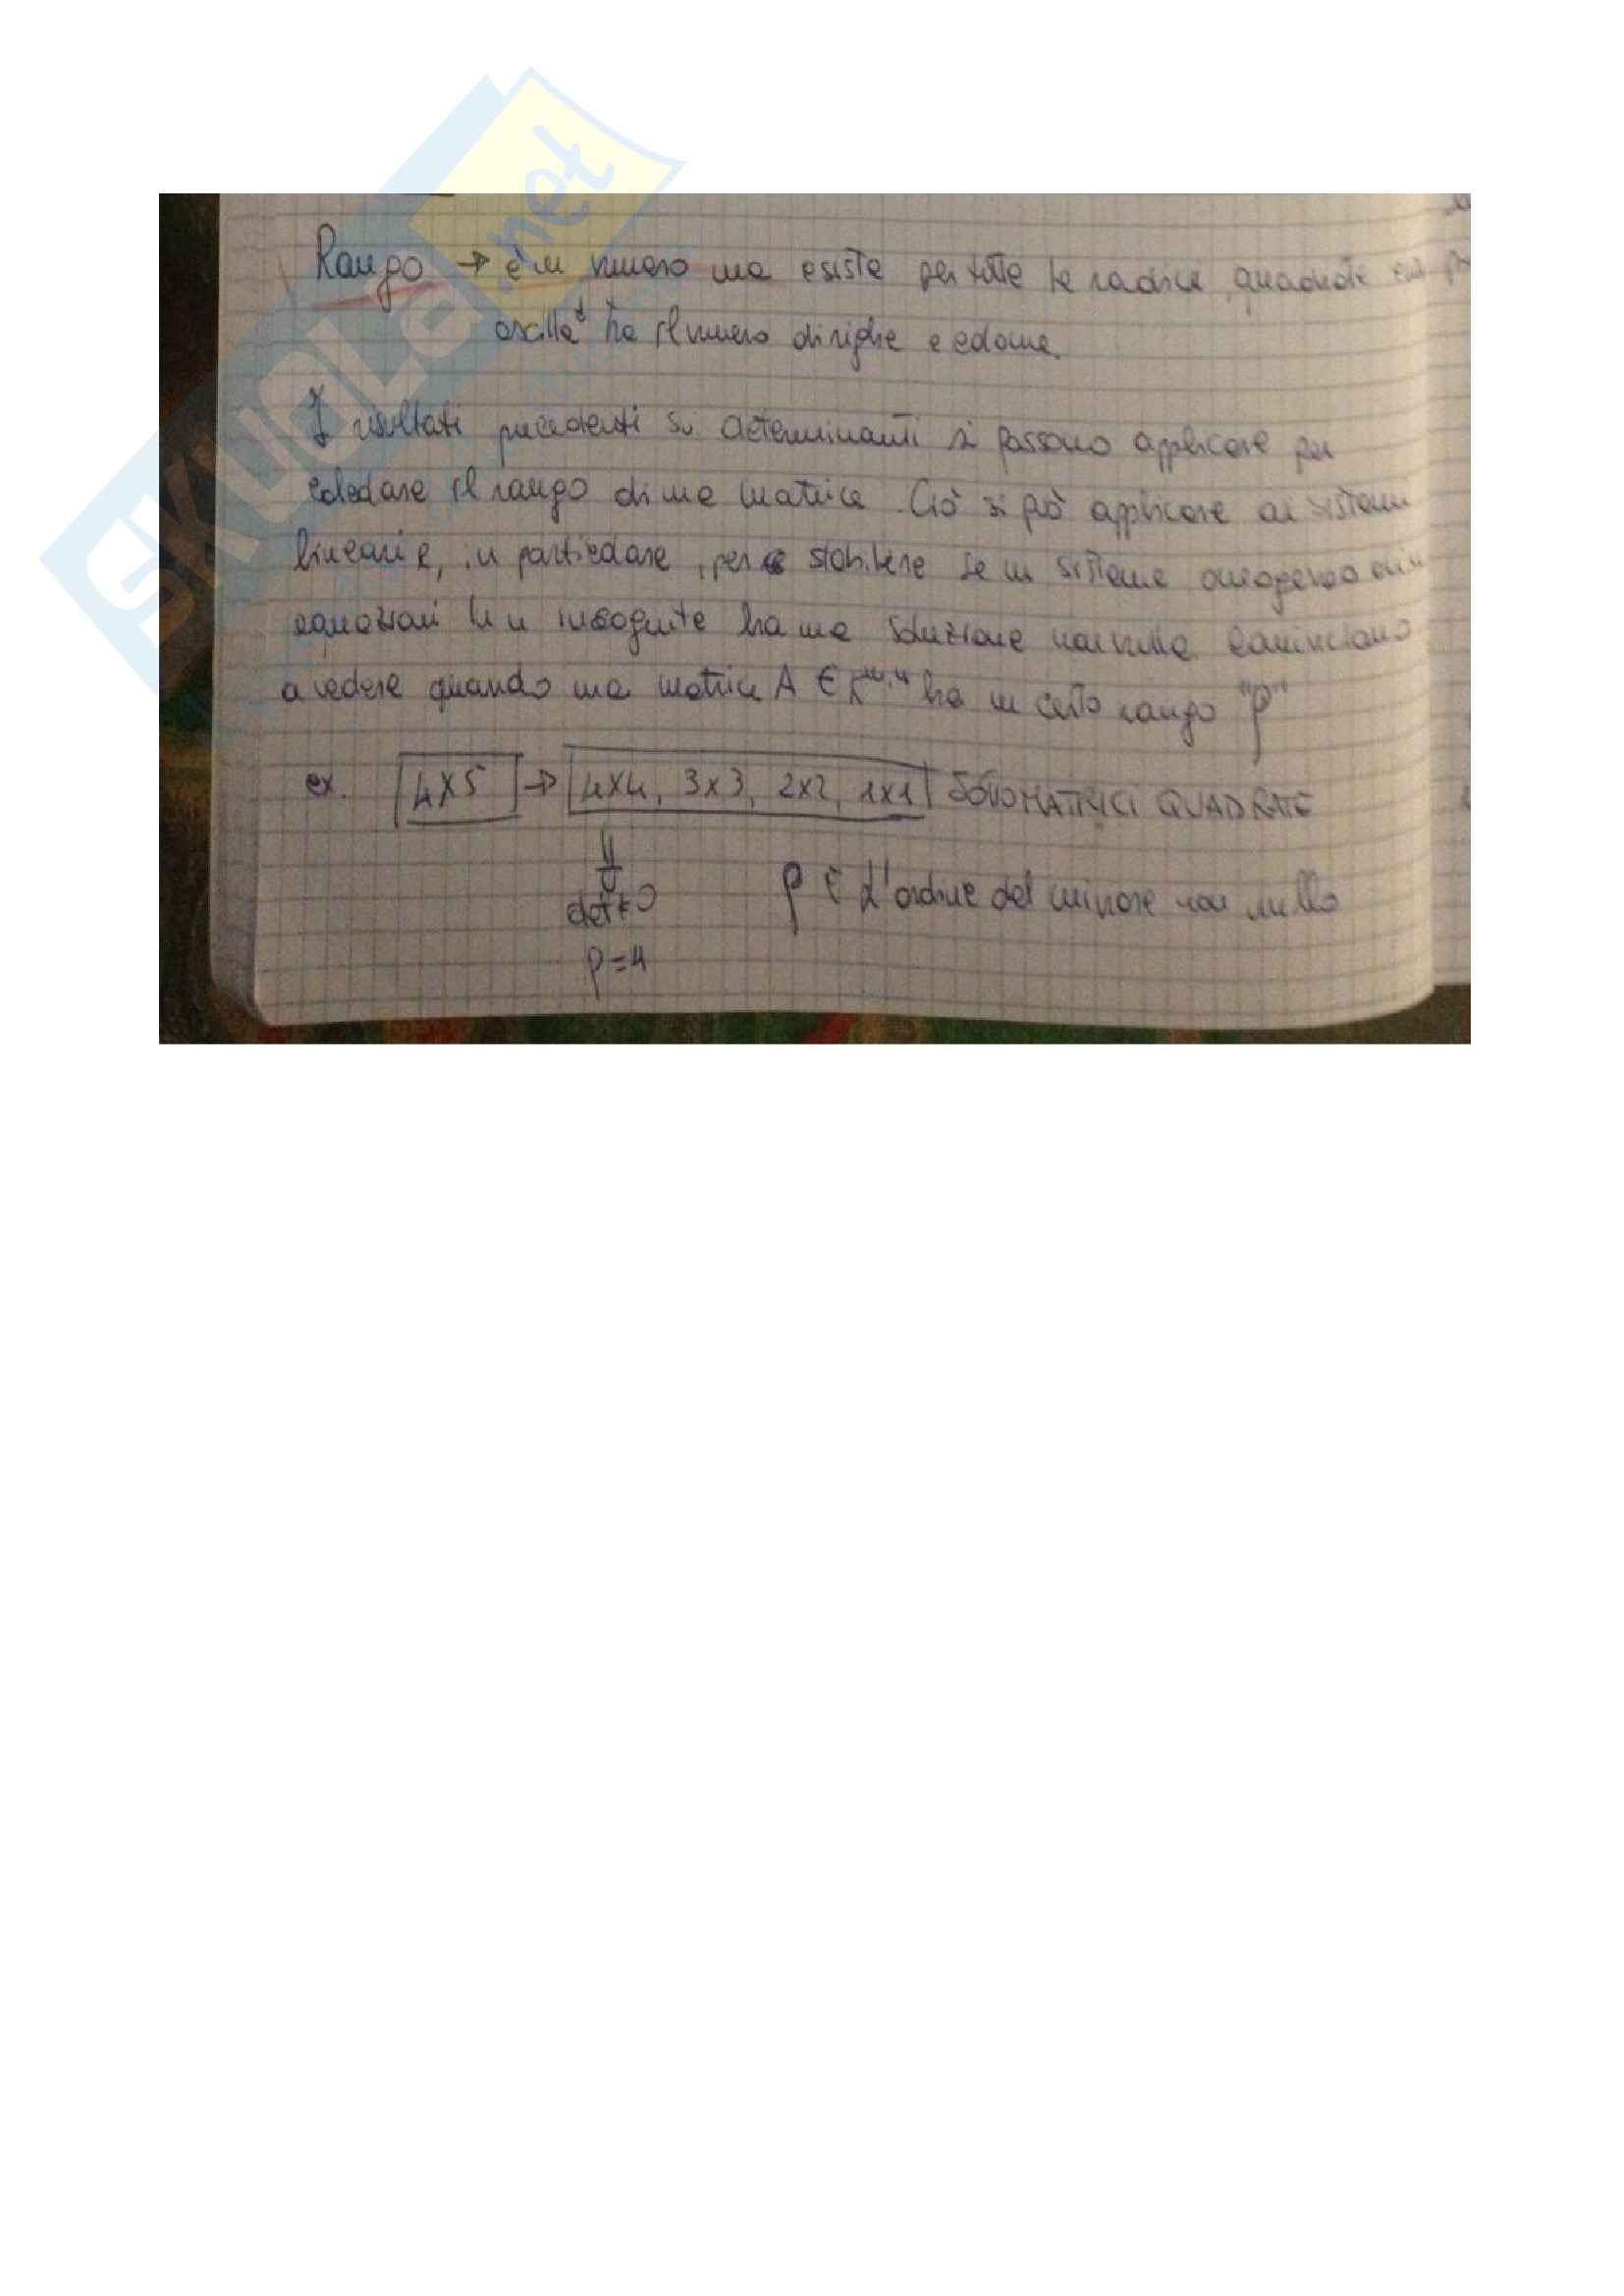 SKUOLa.net
Rango → è un numero ma esiste per tutte le radici quadrate
oscilla tra il numero di righe e colonne.
I risultati precedenti sui determinanti si possono applicare per
calcolare il rango di una matrice. Ciò si può applicare ai sistemi
lineari e, in particolare, per stabilire se un sistema omogeneo
equazioni in n incognite ha una soluzione non nulla. Cominciamo
a vedere quando una matrice A ∈ ha un certo rango "ρ"
ex. 4x5 → 4x4, 3x3, 2x2, 1x1 SOTTOMATRICI QUADRATE
⇓
det ≠ 0 ρ è l'ordine del minore non nullo
ρ=4